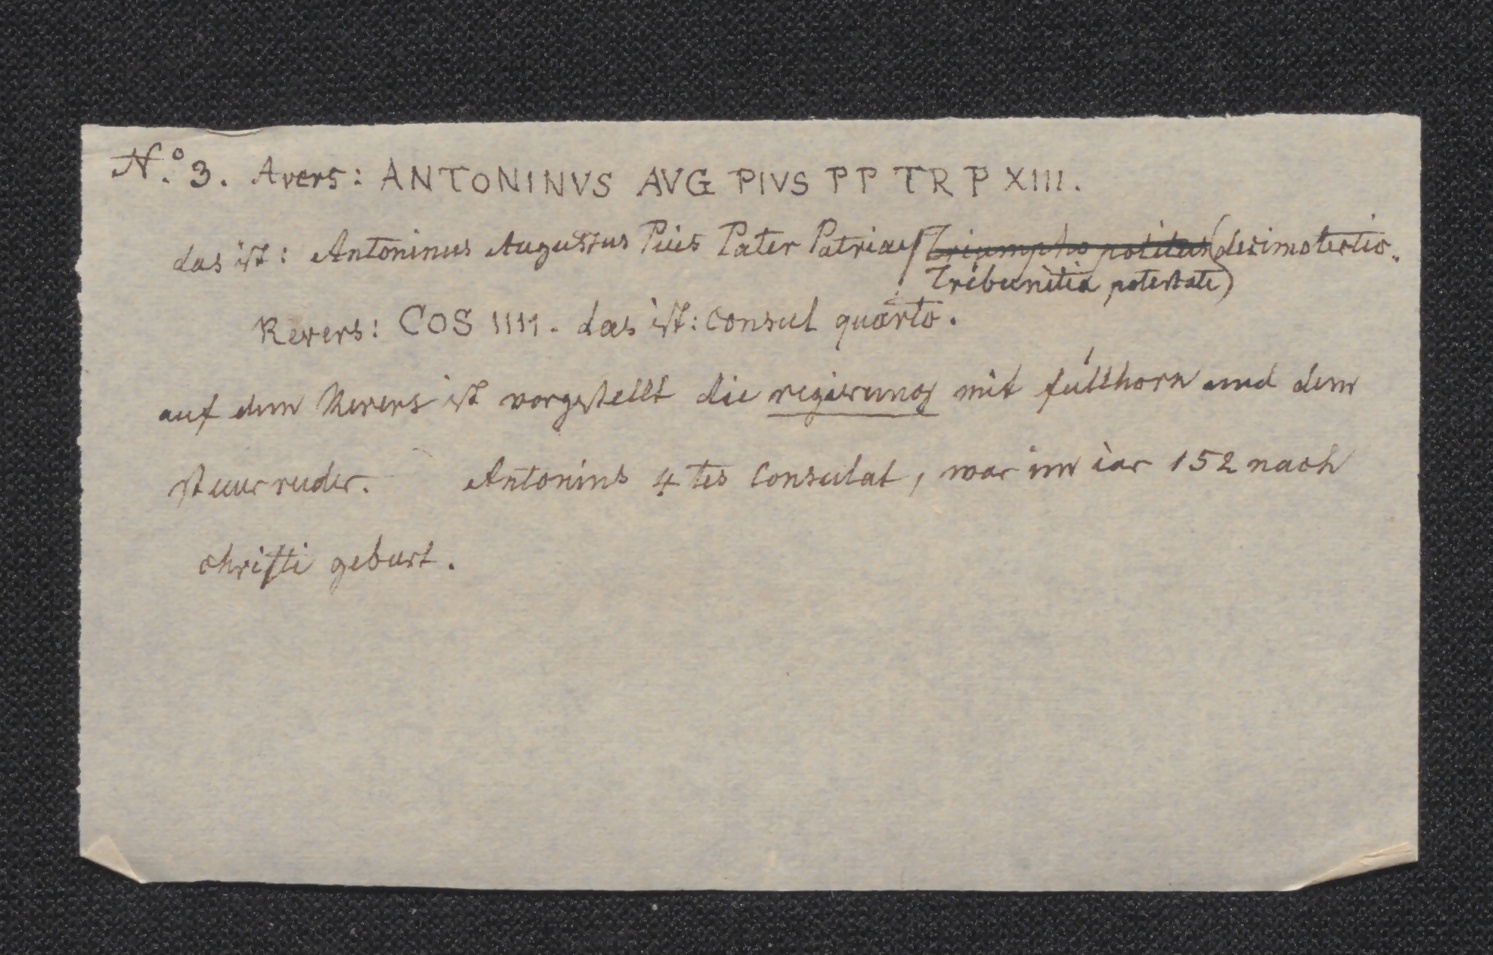 N.º 3. Avers: ANTONINVS AVG PIVS PP TR P XIII.
das ist: Antoninus Augustus Pius Pater Patriae (Triumpho potitus (decimotertio.
Tribunitia potestate)
Revers: COS IIII. das ist: Consul quarto.
auf dem Revers ist vorgestellt die regierung mit füllhorn und dem
steuerruder. Antonins 4 tes Consulat, war im iar 152 nach
christi geburt.